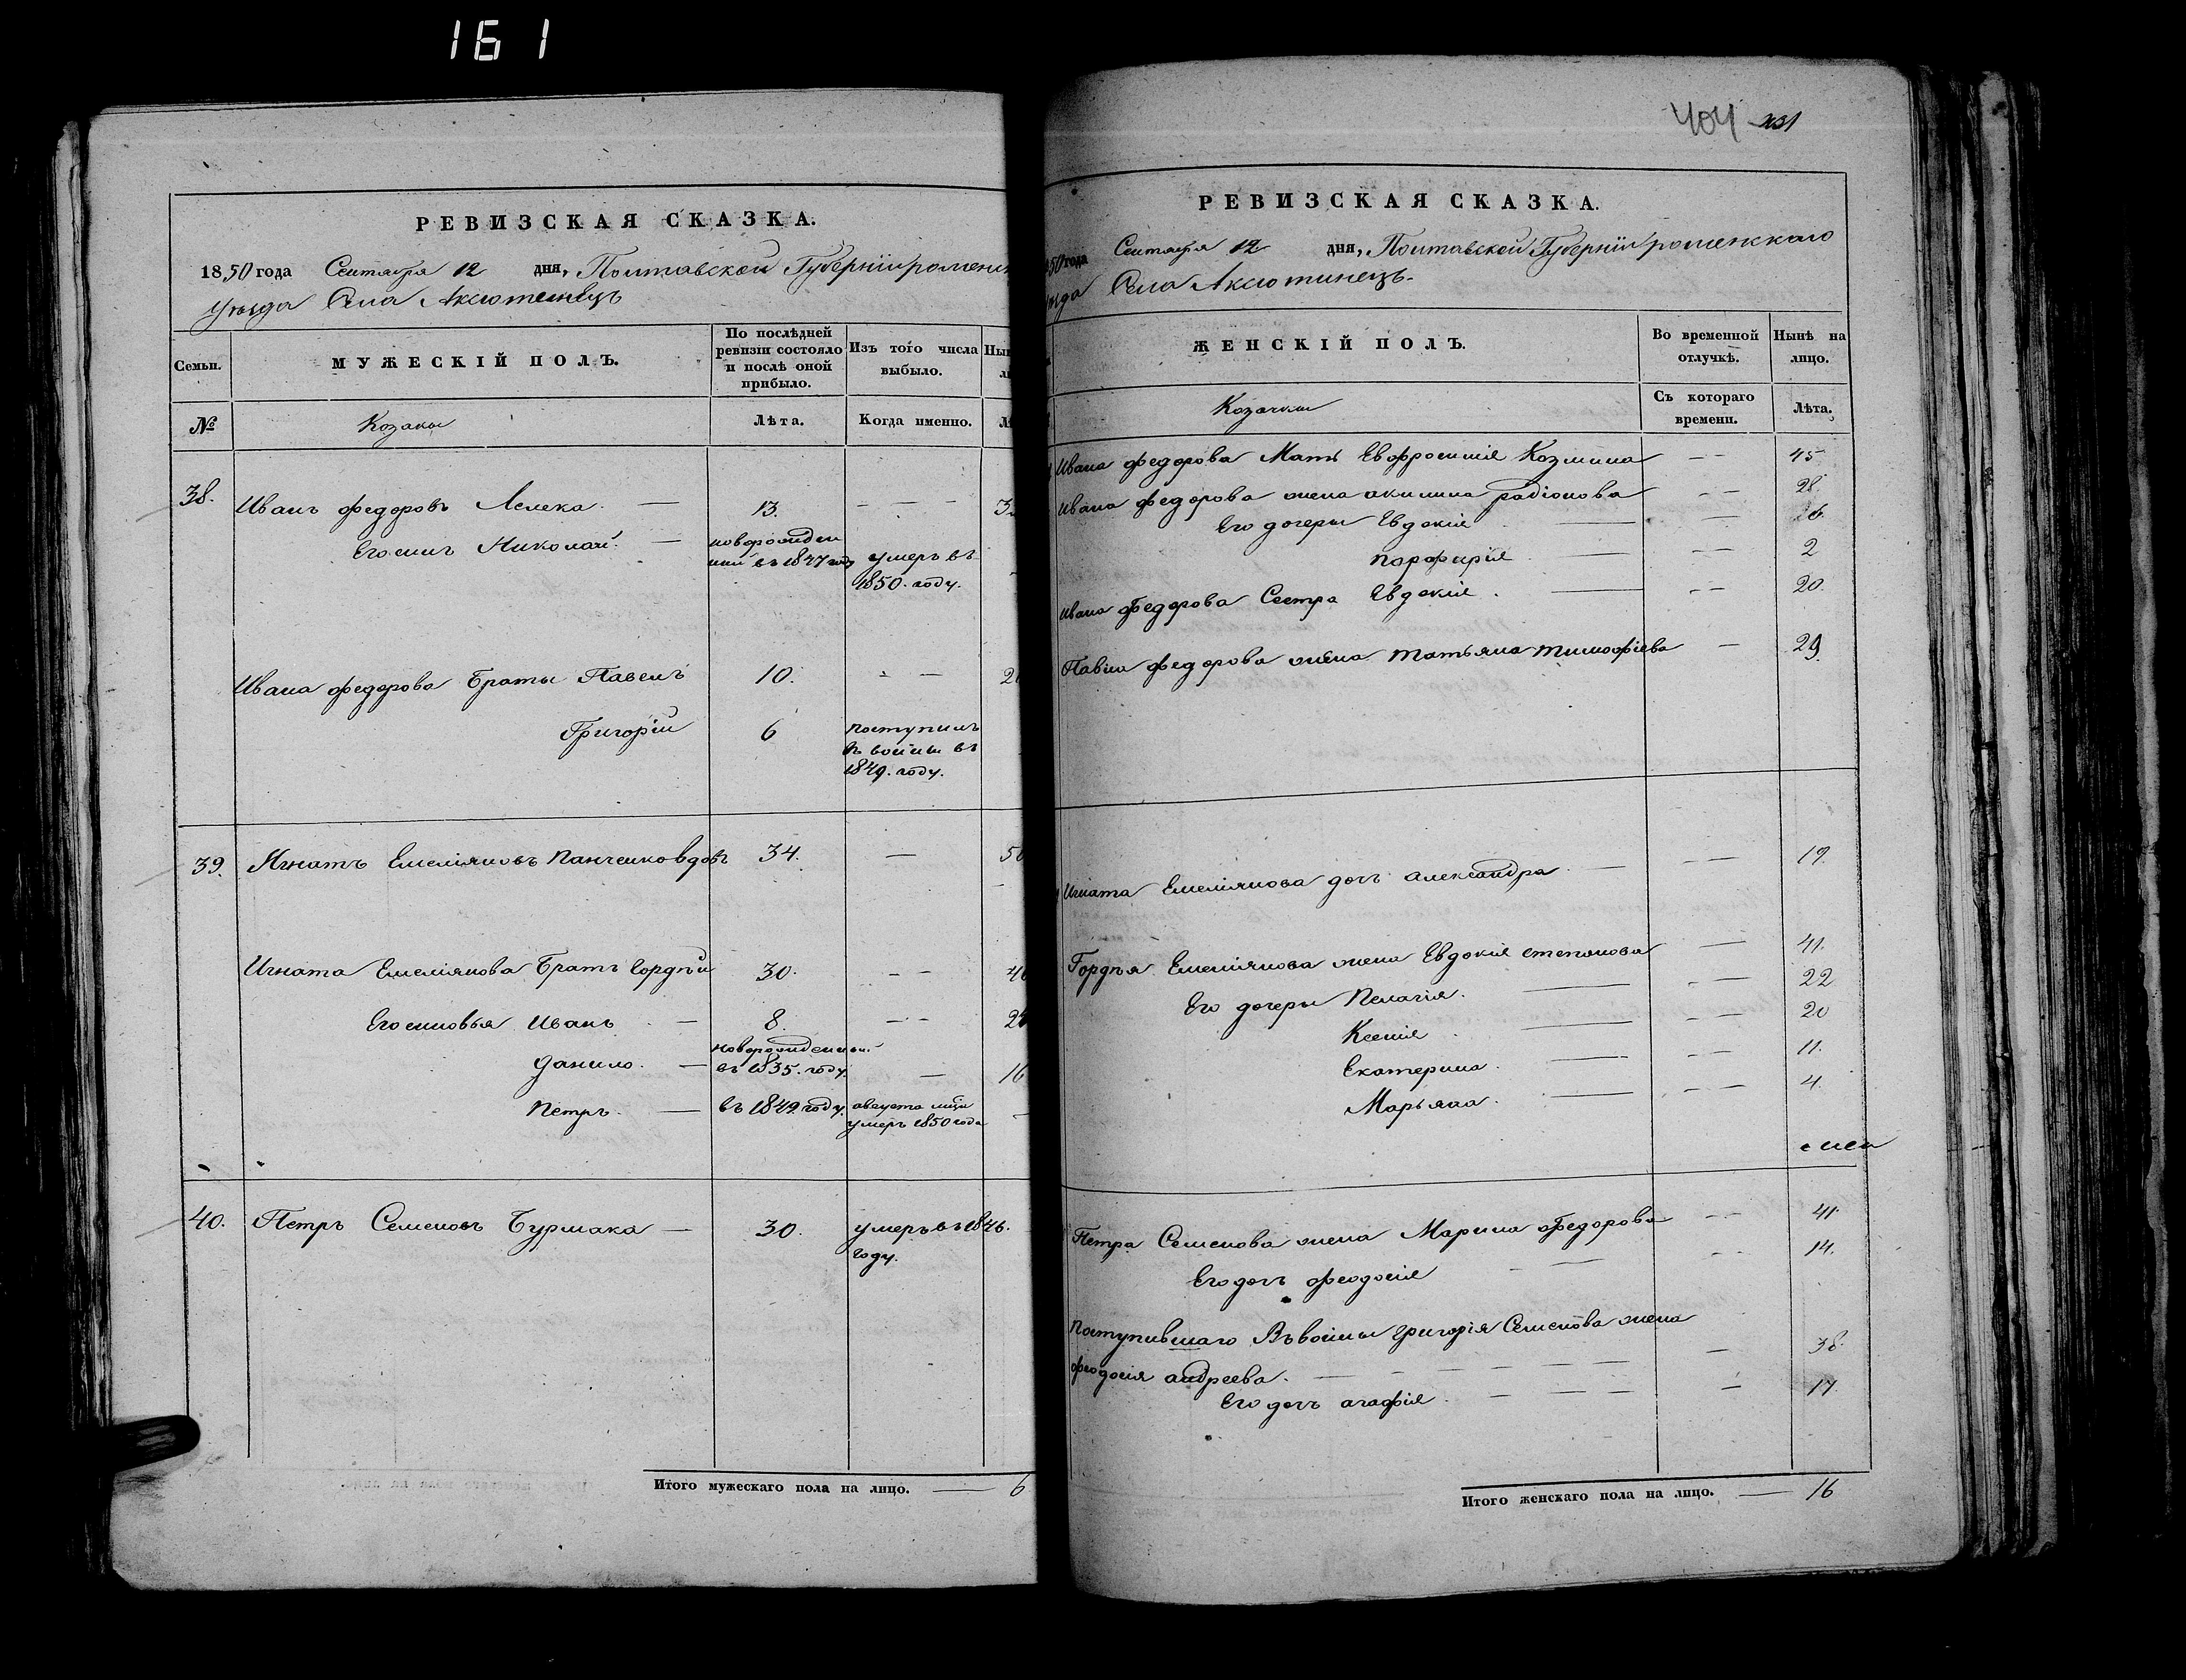 161
РЕВИЗСКАЯ СКАЗКА.
1850 года Сентября 12 дня, Полтавской Губерніи роменс
уѣзда Села Аксютенецъ
Семьи.
МУЖЕСКІЙ ПОЛЪ.
По послѣдней
ревизіи состояло
и послѣ оной
прибыло.
Изъ того числа
выбыло.
№
Козаки
Лѣта.
Когда именно.
38. Иванъ федоровъ Лелека. — 13. — — —
Его сынъ Николай. — новорожден
ный въ 1847 году умеръ въ
1850. году.
Ивана федорова Браты Павелъ 10. — —
Григорій 6 поступилъ
въ воины въ
1849. году.
39. Игнатъ Емеліяновъ Панченко вдовъ 34. —
Игната Емеліянова Братъ Гордѣй 30. — —
Его сыновья Иванъ — 8. — —
Данило. — новорожденный
въ 1835. году. — 16
Петръ. — въ 1849 году. августа мца
умеръ 1850 года
40. Петръ Семеновъ Бурмака — 30. умеръ въ 1846.
году.
Итого мужескаго пола на лицо. — 6
404 231
РЕВИЗСКАЯ СКАЗКА.
50 года Сентября 12 дня, Полтавской Губерніи роменскаго
Села Аксютинецъ.
ЖЕНСКІЙ ПОЛЪ.
Во временной
отлучкѣ.
Нынѣ на
лицо.
Козачки
Съ котораго
времени.
Лѣта.
Ивана федорова Мать Евфросинія Козмина — — 45
Ивана федорова жена акилина радіонова — — 28.
Его дочеры Евдокія — — —
порфирія — — — 2
Ивана федорова Сестра Евдокія. — — — 20.
Павла федорова жена татьяна тимофіева — 29.
Игната Емеліянова дочь александра — — — 19.
Гордѣя Емеліянова жена Евдокія степанова — 41.
Его дочеры Пелагія. — — — 22
Ксенія — — — 20
Екатерина. — — — 11.
Марьяна. — — — 4.
Петра Семенова жена Марина федорова — — 41.
Его дочь феодосія — — — 14.
Поступившаго Въ воины григорія Семенова жена
феодосія андреева. — — — — — — 38.
Его дочь агафія. — — — — 17.
Итого женскаго пола на лицо. — 16